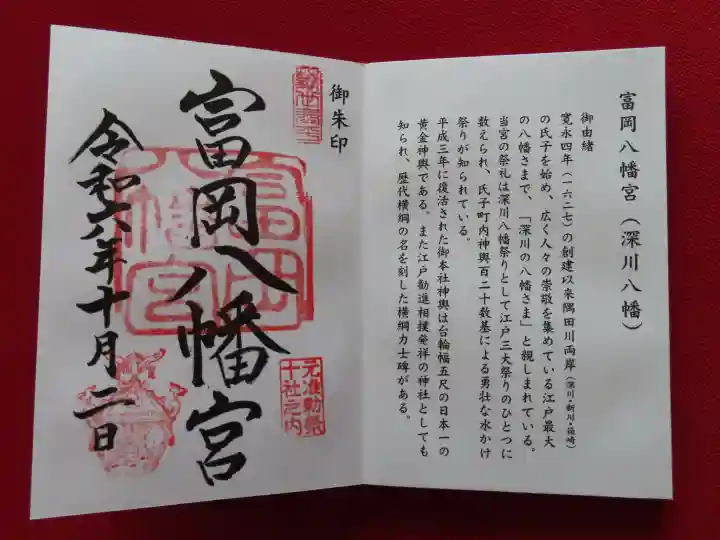 富岡八幡宮（深川八幡）
御由緒
寛永四年（一六二七）の創建以来隅田川両岸（深川・新川・箱崎）
の氏子を始め、広く人々の崇敬を集めている江戸最大
の八幡さまで、「深川の八幡さま」と親しまれている。
当宮の祭礼は深川八幡祭りとして江戸三大祭りのひとつに
数えられ、氏子町内神輿百二十数基による勇壮な水かけ
祭りが知られている。
平成三年に復活された御本社神輿は台輪幅五尺の日本一の
黄金神輿である。また江戸勧進相撲発祥の神社としても
知られ、歴代横綱の名を刻した横綱力士碑がある。
御朱印
富岡八幡宮
富岡
八幡宮
元准勅祭
十社之内
令和六年十月二日